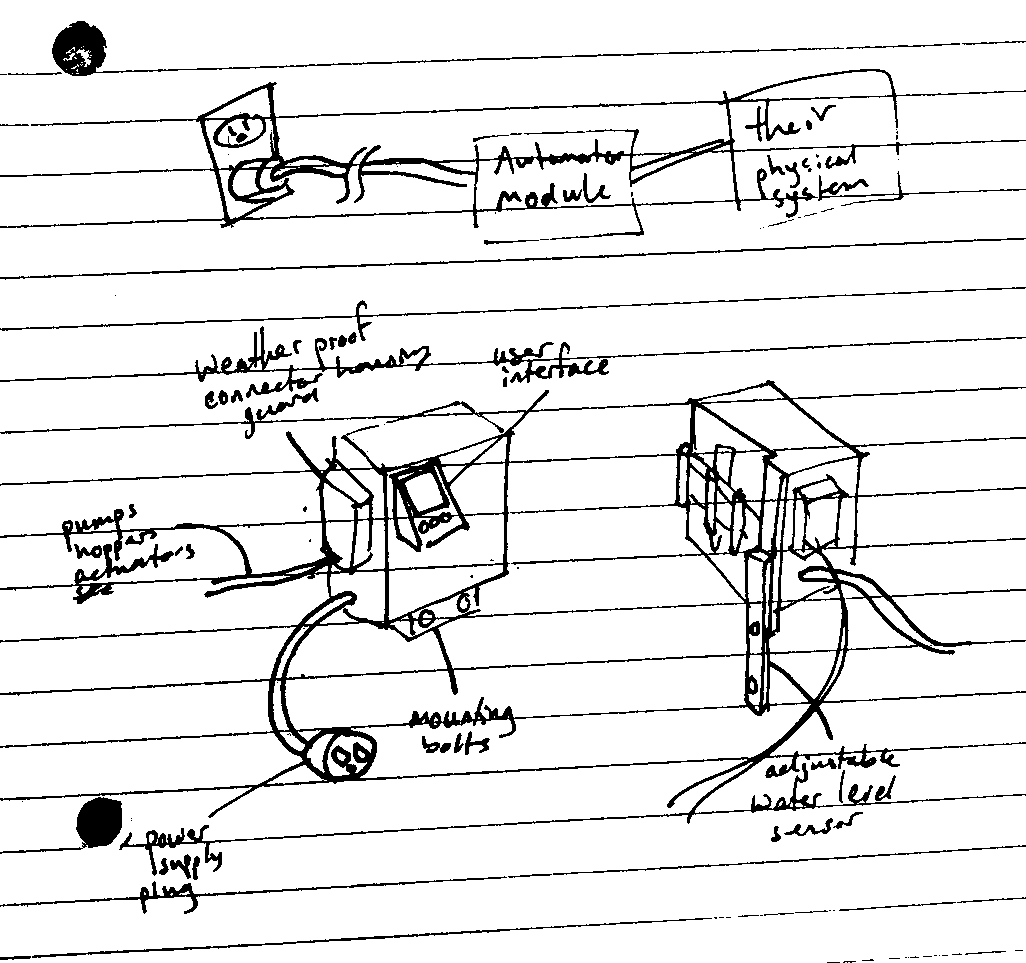 Automator
module
their
physical
system
Weather proof
connector housing
guard
user
interface
pumps
hoppers
actuators
mounting
bolts
power
supply
plug
adjustable
water level
sensor